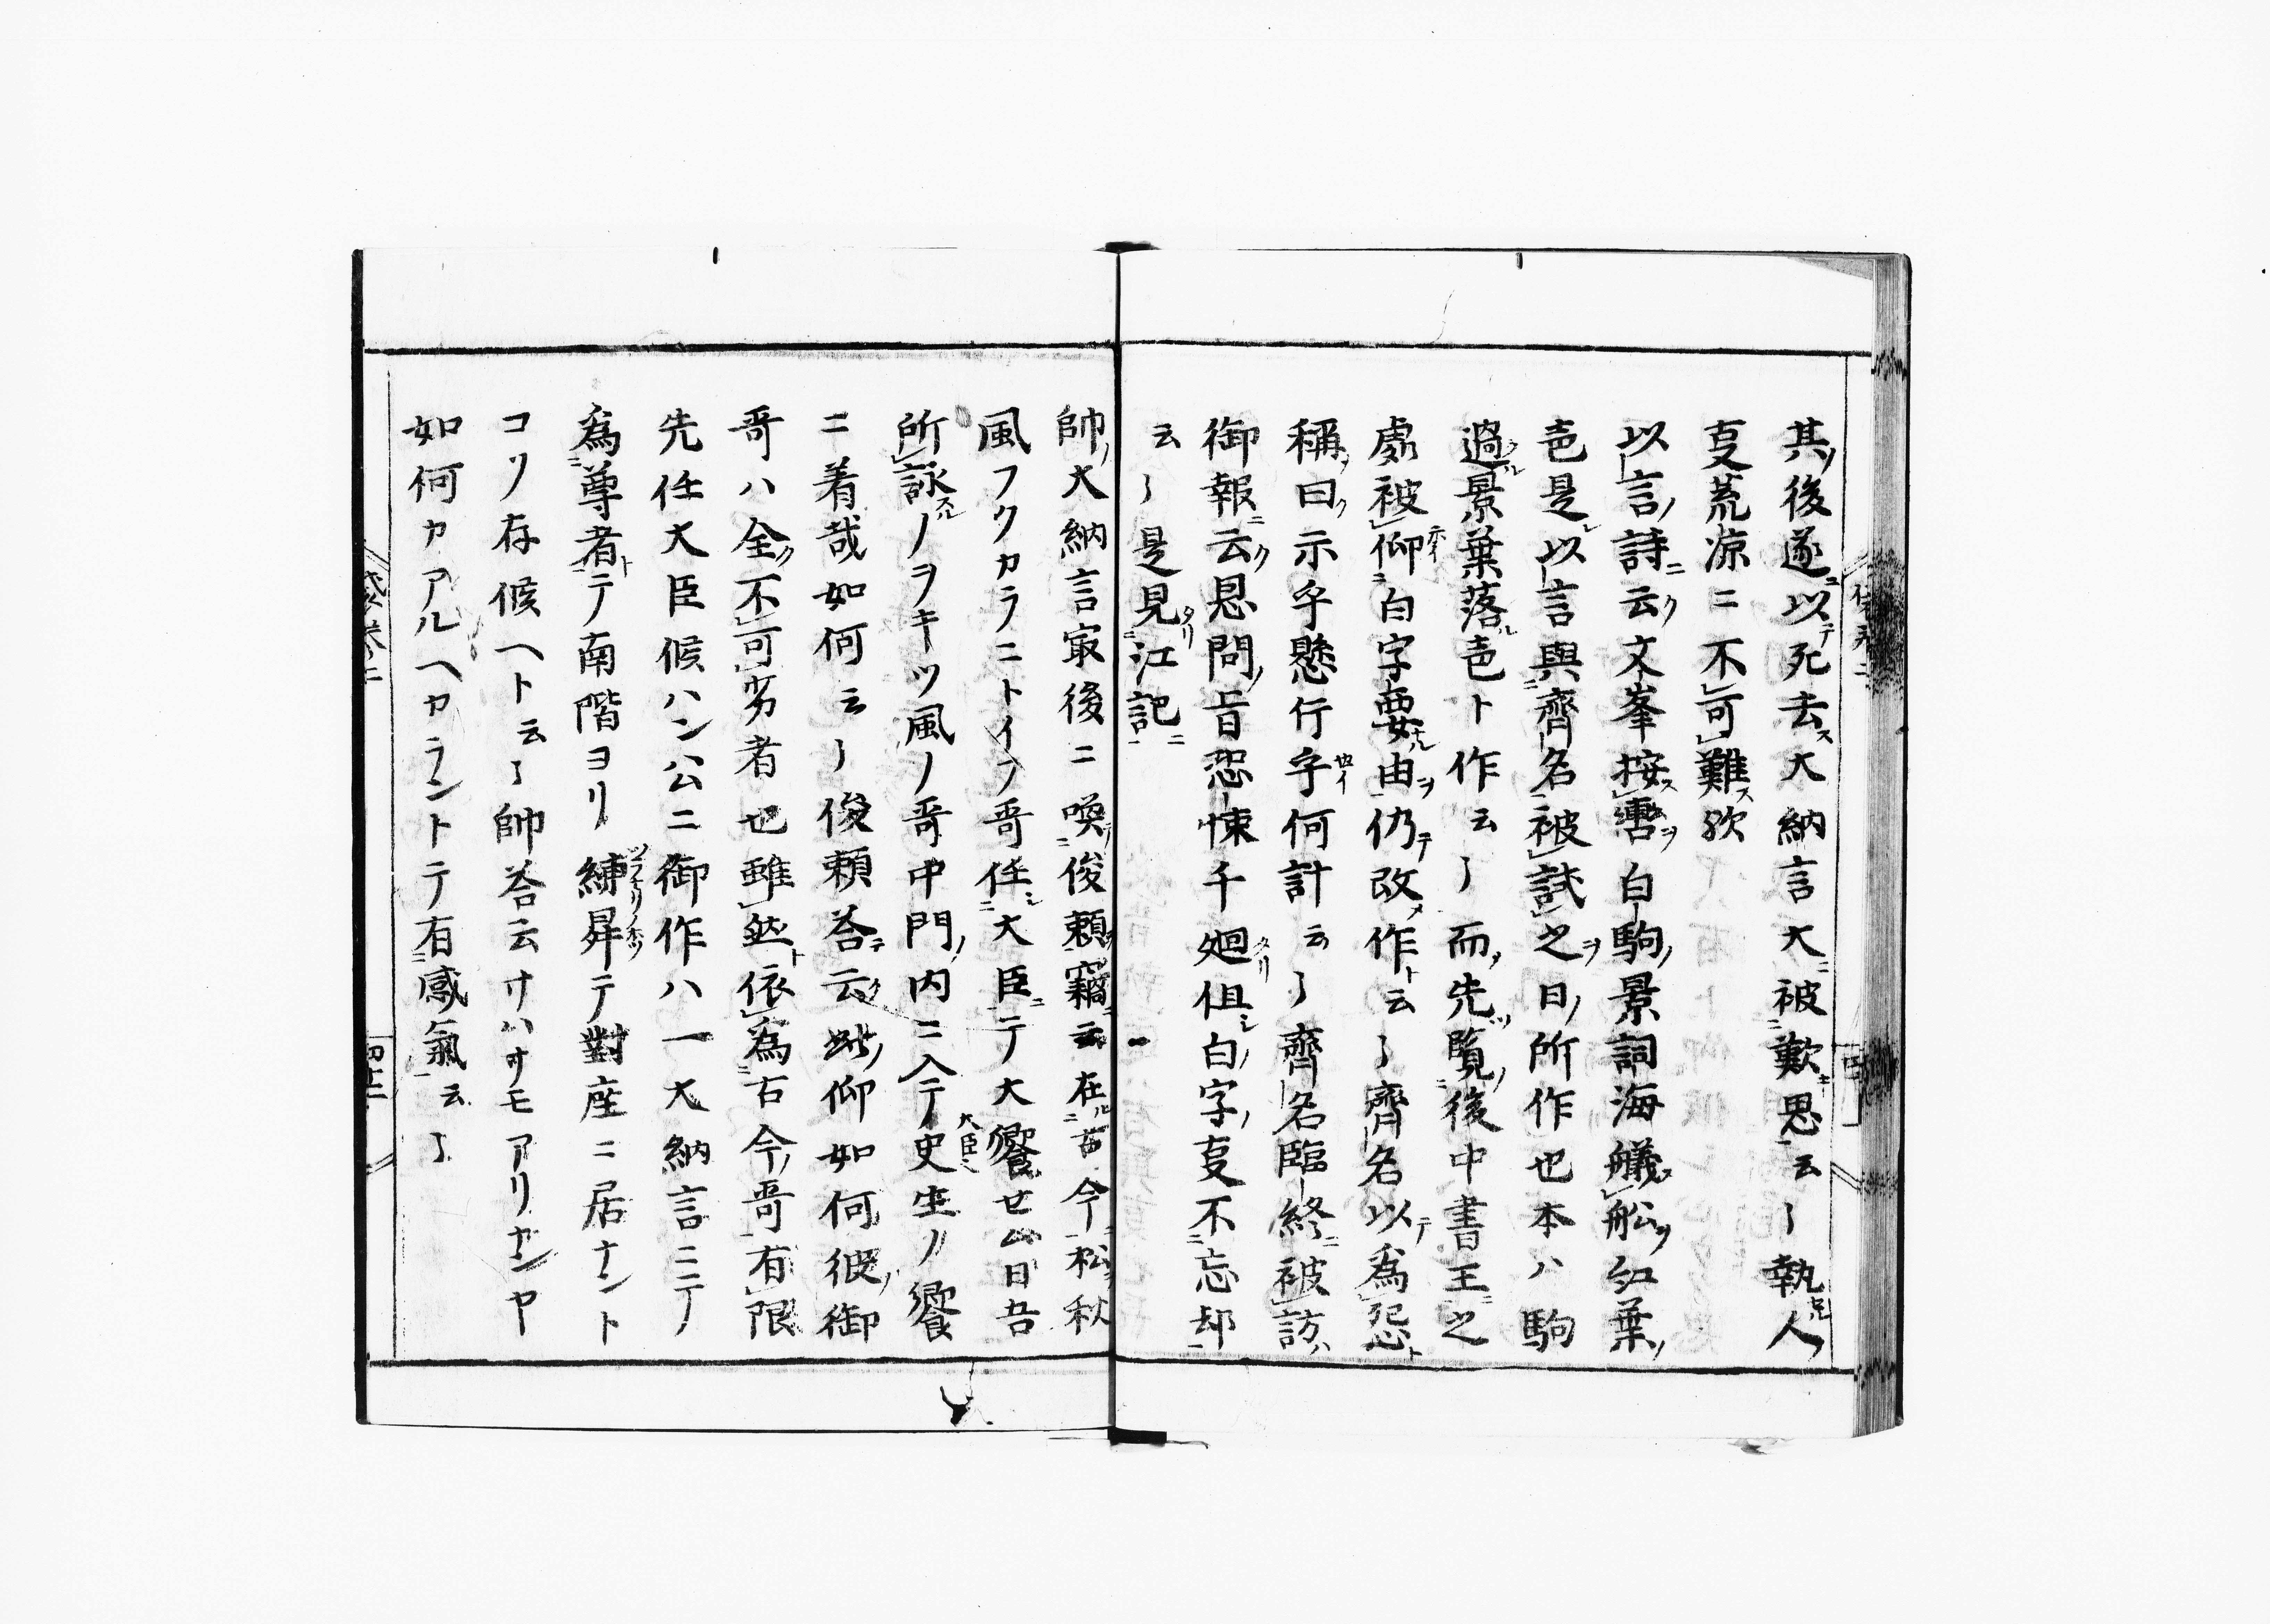 其後遂以死去大納言大被歎思云々執人
叓荒涼ニ不可難欤
以言詩云文峯按轡白駒景詞海艤舩紅葉
色是以言與齊名被試之日所作也本ハ駒
過景葉落色ト作云々而先覧後中書王之
處被仰白字要由仍改作云々齊名以為怨
稱曰示乎懸行乎何計云々齊名臨終被訪
御報云恩問旨恐悚千廻但白字叓不忘却
云々是見江記
帥大納言㝡後ニ喚俊頼竊云在古今松秋
風フクカラニトイフ哥任大臣テ大饗せム日吾
所詠ノヲキツ風ノ哥中門内ニ入テ史生ノ饗
ニ着哉如何云々俊頼荅云此仰如何彼御
哥ハ全不可劣者也雖然依為古今哥有限
先任大臣候ハン公ニ御作ハ一大納言ニテ
為尊者テ南階ヨリ練昇テ對座ニ居ナント
コソ存候ヘト云々帥荅云サハサモアリセンヤ
如何カアルヘカラントテ有感氣云々